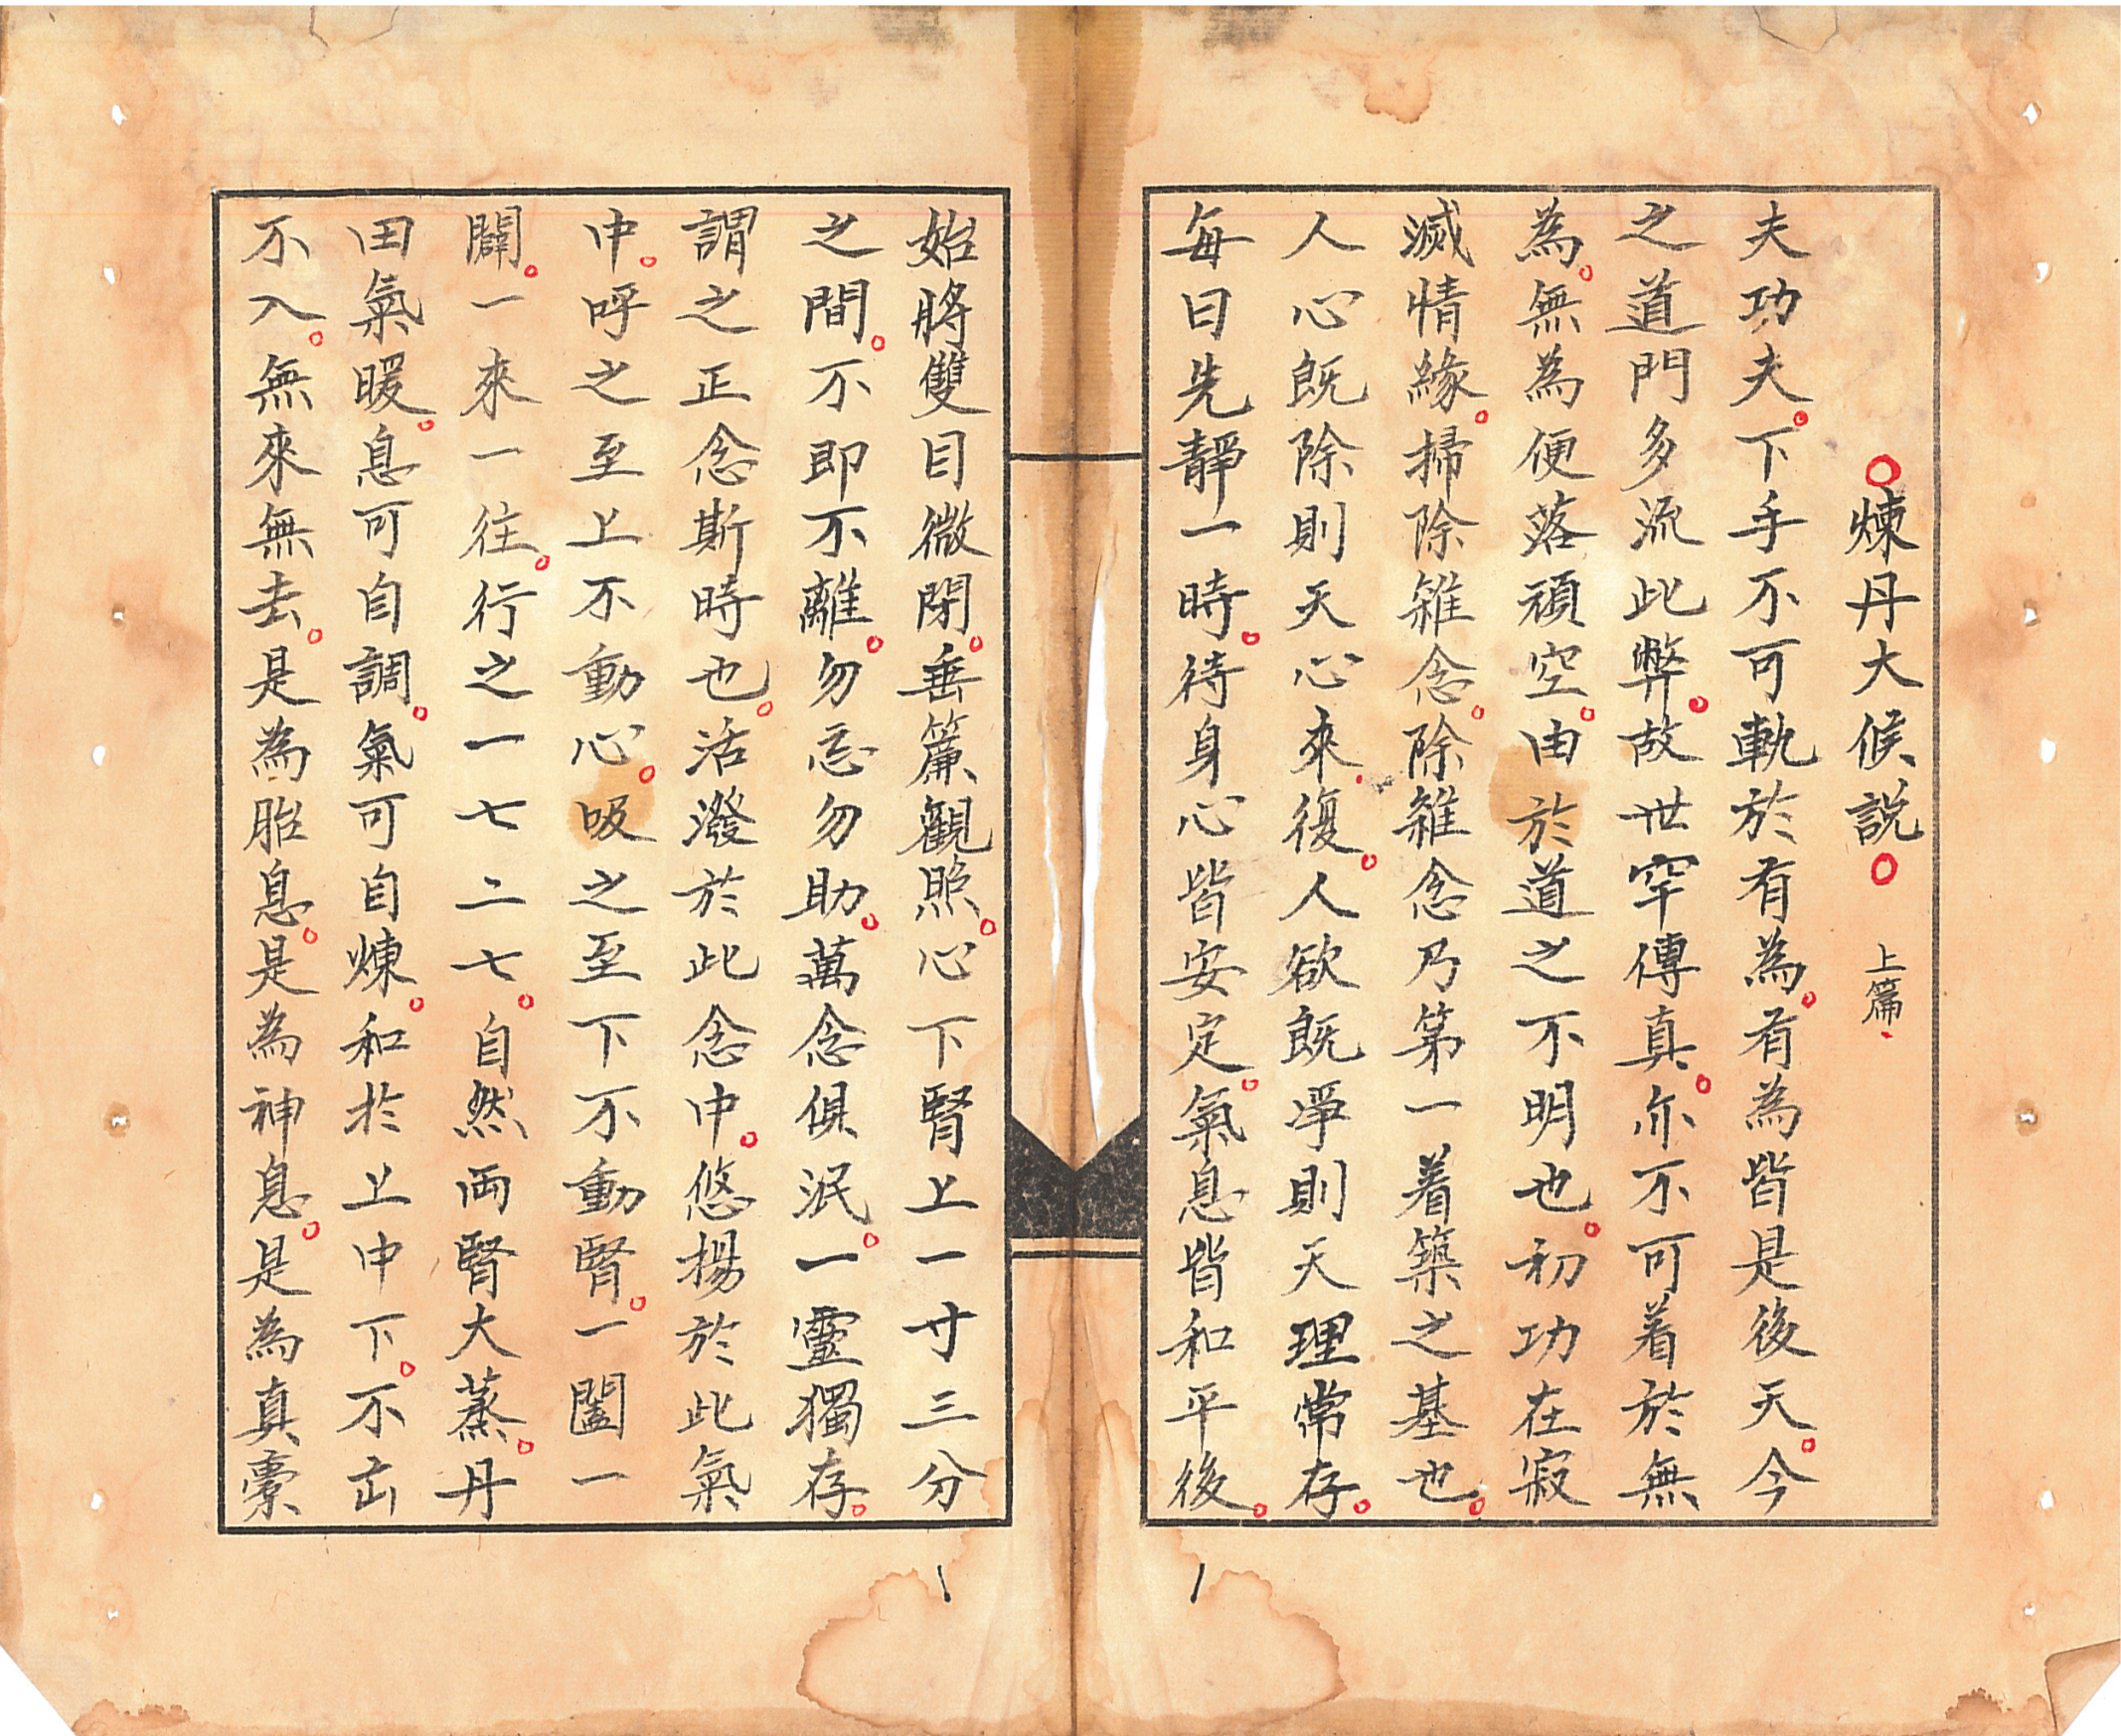 ○煉丹大候説○ 上篇、
夫功夫。下手不可軌於有為。有為皆是後天。今
之道門多流此弊。故世罕傳真。亦不可着於無
為。無為便落頑空。由於道之不明也。初功在寂
滅情緣。掃除雜念。除雜念乃第一着築之基也。
人心既除則天心來、復。人欲既淨則天理常存。
每日先靜一時。待身心皆安定。氣息皆和平後。
始將雙目微閉。垂簾觀照。心下腎上一寸三分
之間。不即不離。勿忘勿助。萬念俱泯。一靈獨存。
謂之正念斯時也。活潑於此念中。悠揚於此氣
中。呼之至上不動心。吸之至下不動腎。一闔一
闢。一來一往。行之一七二七。自然両腎大蒸。丹
田氣暖。息可自調。氣可自煉。和於上中下。不出
不入。無來無去。是為胎息。是為神息。是為真橐